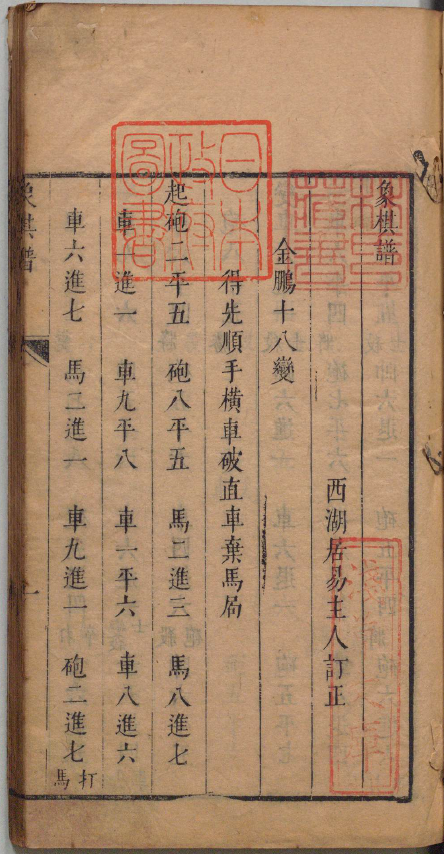 象棋譜
西湖居易主人訂正
金鵬十八變
得先順手橫車破直車棄馬局
起砲二平五 砲八平五 馬二進三 馬八進七
車一進一 車九平八 車一平六 車八進六
車六進七 馬二進一 車九進一 砲二進七打馬
象棋譜
日本政府圖書